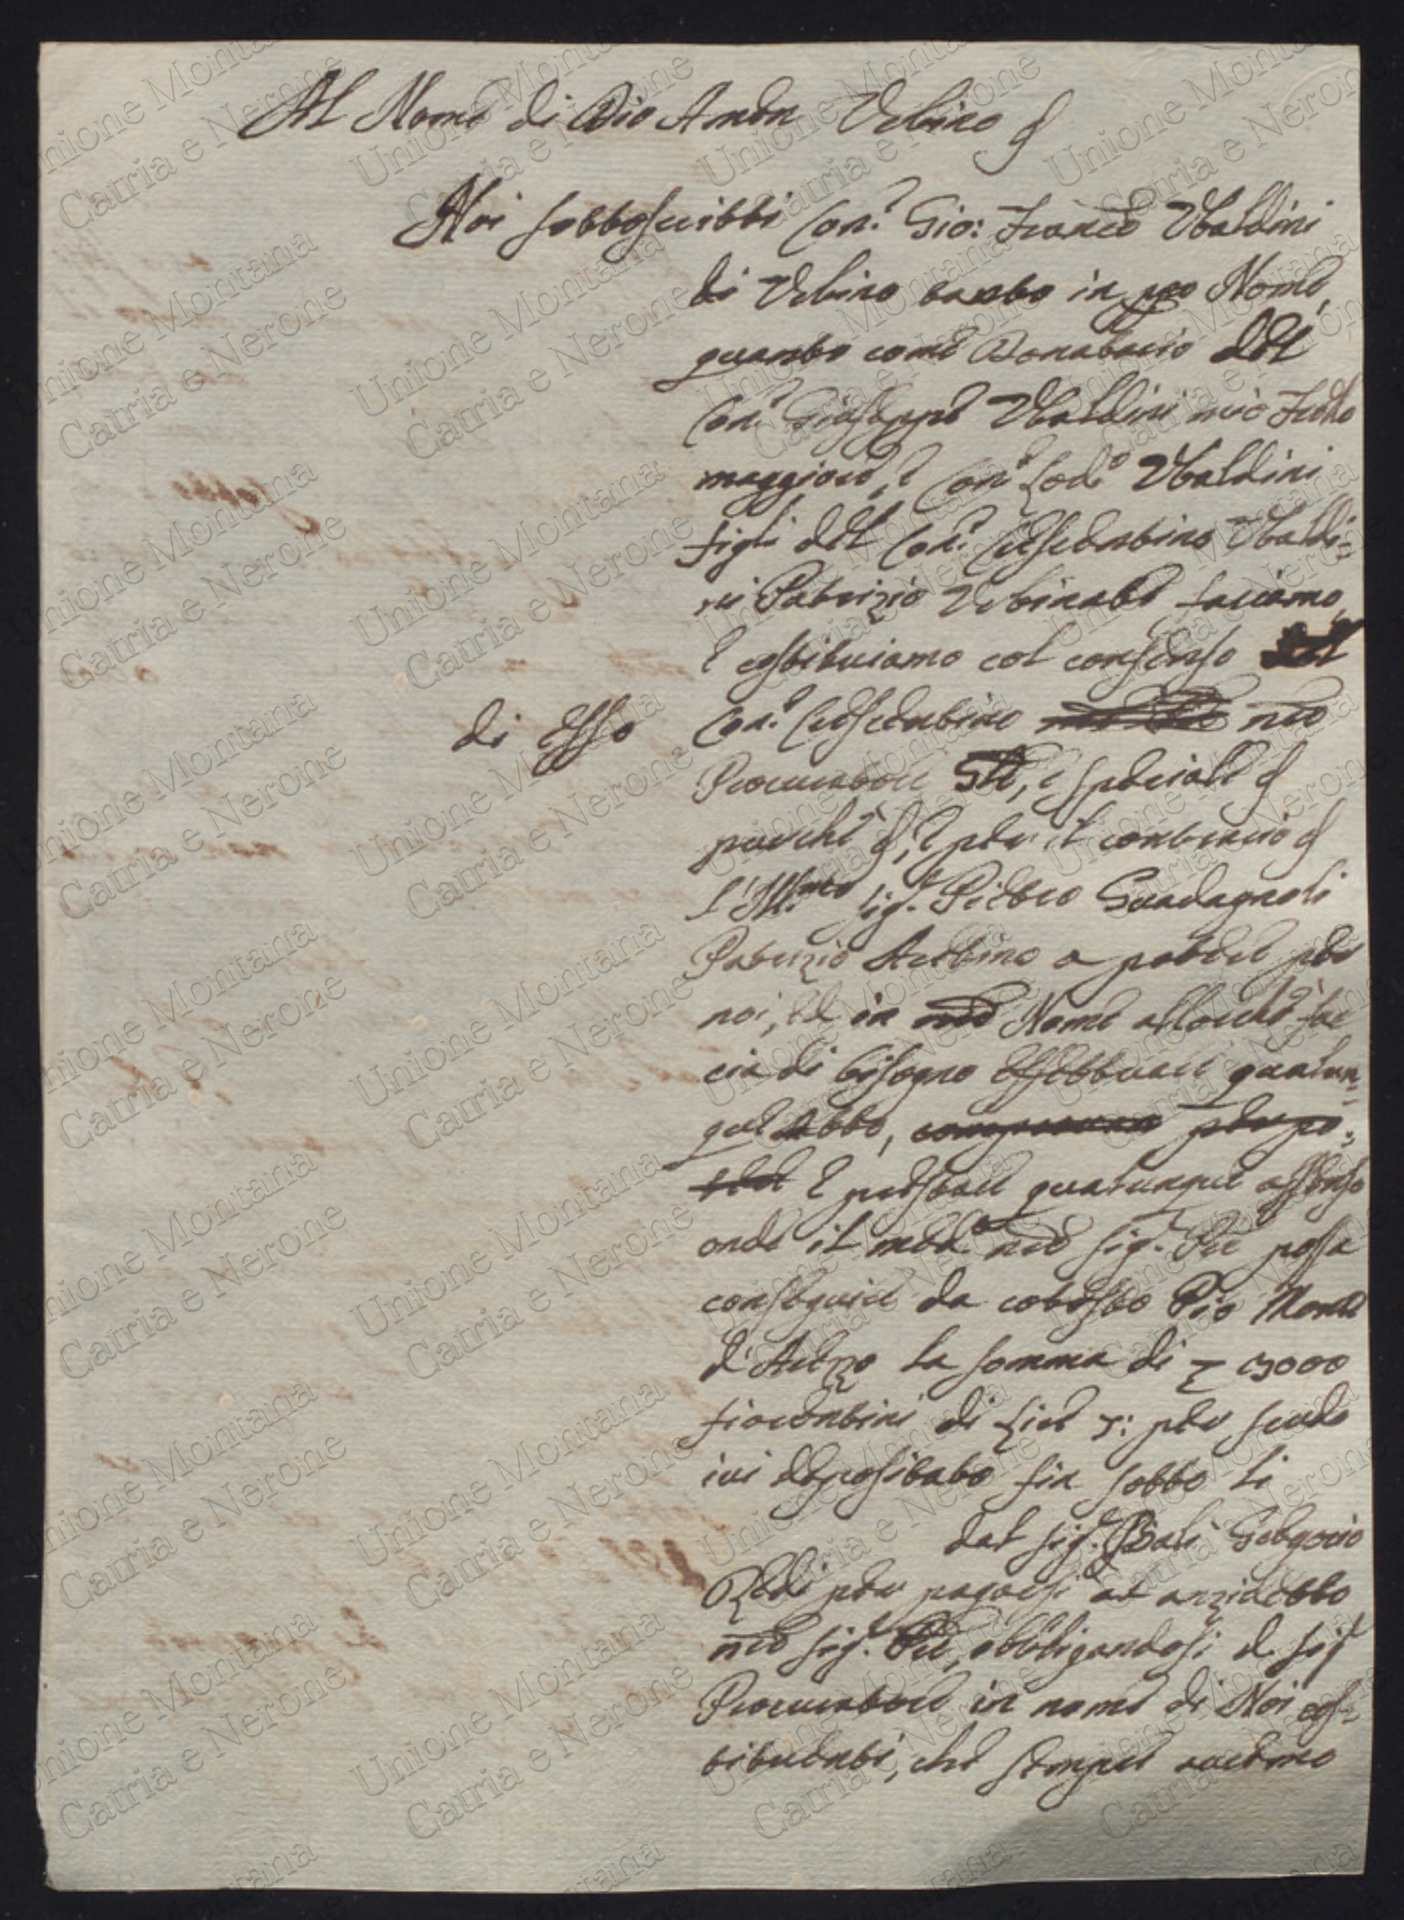 Al Nome di Dio Amen Urbino
Noi sottoscritti Con.e Gio: Franco Ubaldini
di Urbino tanto in ppo Nome,
quanto come Donatario del
Con.e Giuseppe Ubaldini mio Frello
maggiore, e Con.e Lod.o Ubaldini
figli del Con.e Crescentino Ubaldi-
ni Patrizio Urbinate facciamo,
e costituiamo col consenso del
di Esso Con.e Crescentino nro
Procuratore Gle, e speciale
purchè, e per il contrario
l'Ill.mo Sig.r Pietro Guadagnoli
Patrizio Aretino a potere per
noi, ed in nro Nome allorchè fac
cia di bisogno effettuare qualun-
que Atto,
e prestare qualunque assenso
onde il med.o nro Sig. Pre possa
conseguire da cotesto Pio Monte
d'Arezzo la somma di
fiorentini di Lire 7: per scudo
ivi depositato fin sotto li
dal Sig.r Balì Gregorio
Redi per pagarsi al anzidetto
nro Sig.r Pre, obbligandosi d. Sig.r
Procuratore in nome di Noi cos-
tituenti, che sempre avremo
Unione Montana
Catria e Nerone